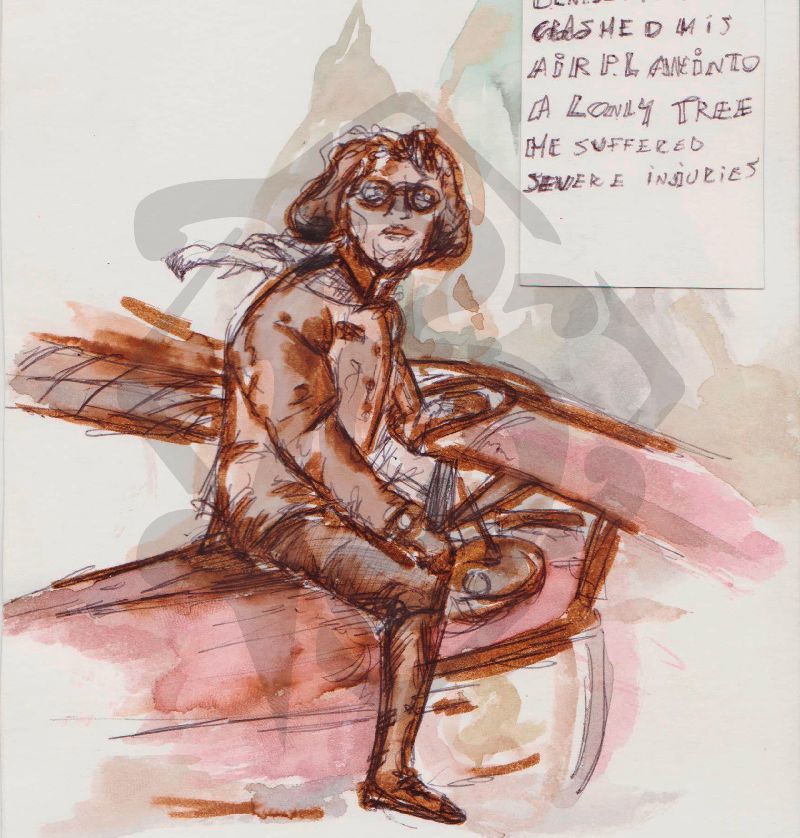 CRASHED HIS
AIRPLANEINTO
A LONLY TREE
HE SUFFERED
SEVERE INJURIES